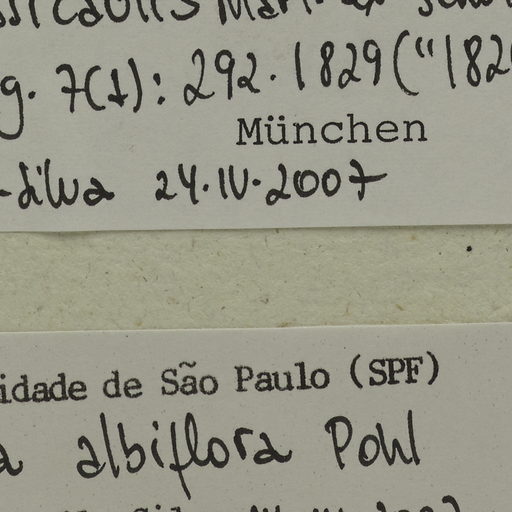 Mart. ex
g. 7(1): 292. 1829 ("182
München
-silva 24.IV.2007
idade de São Paulo (SPF)
a albiflora Pohl